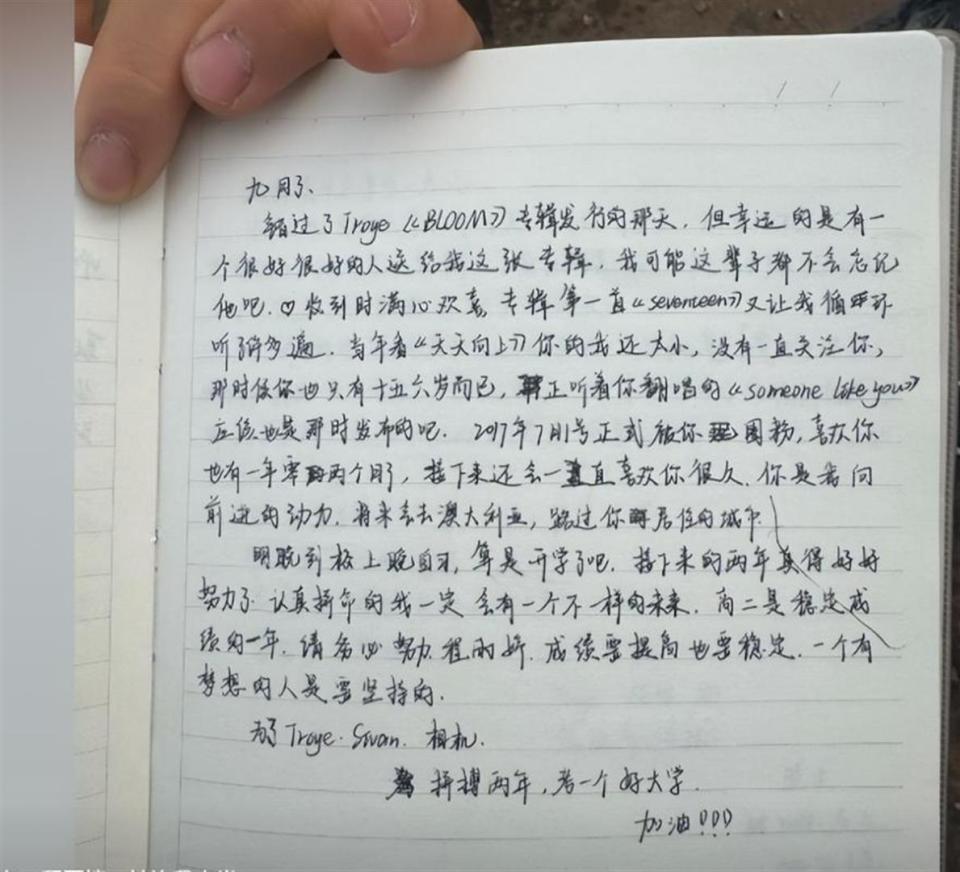 九月了、
错过了Troye《BLOOM》专辑发行的那天，但幸运的是有一
个很好很好的人送给我这张专辑，我可能这辈子都不会忘记
他吧.♡收到时满心欢喜，专辑第一首《seventeen》又让我循环
听了许多遍.当年看《天天向上》你的我还太小，没有一直关注你，
那时候你也只有十五六岁而已，正听着你翻唱的《someone like you》
应该也是那时发布的吧.2017年7月1号正式被你圈粉，喜欢你
也有一年零两个月了，接下来还会一直喜欢你很久.你是我向
前进的动力.将来会去澳大利亚，路过你居住的城市.
明晚到校上晚自习，算是开学了吧.接下来的两年真得好好
努力了.认真拼命的我一定会有一个不一样的未来.高二是稳定成
绩的一年.请务必努力.成绩要提高也要稳定.一个有
梦想的人是要坚持的.
为了Troye.Sivan.相机.
拼搏两年，考一个好大学.
加油!!!